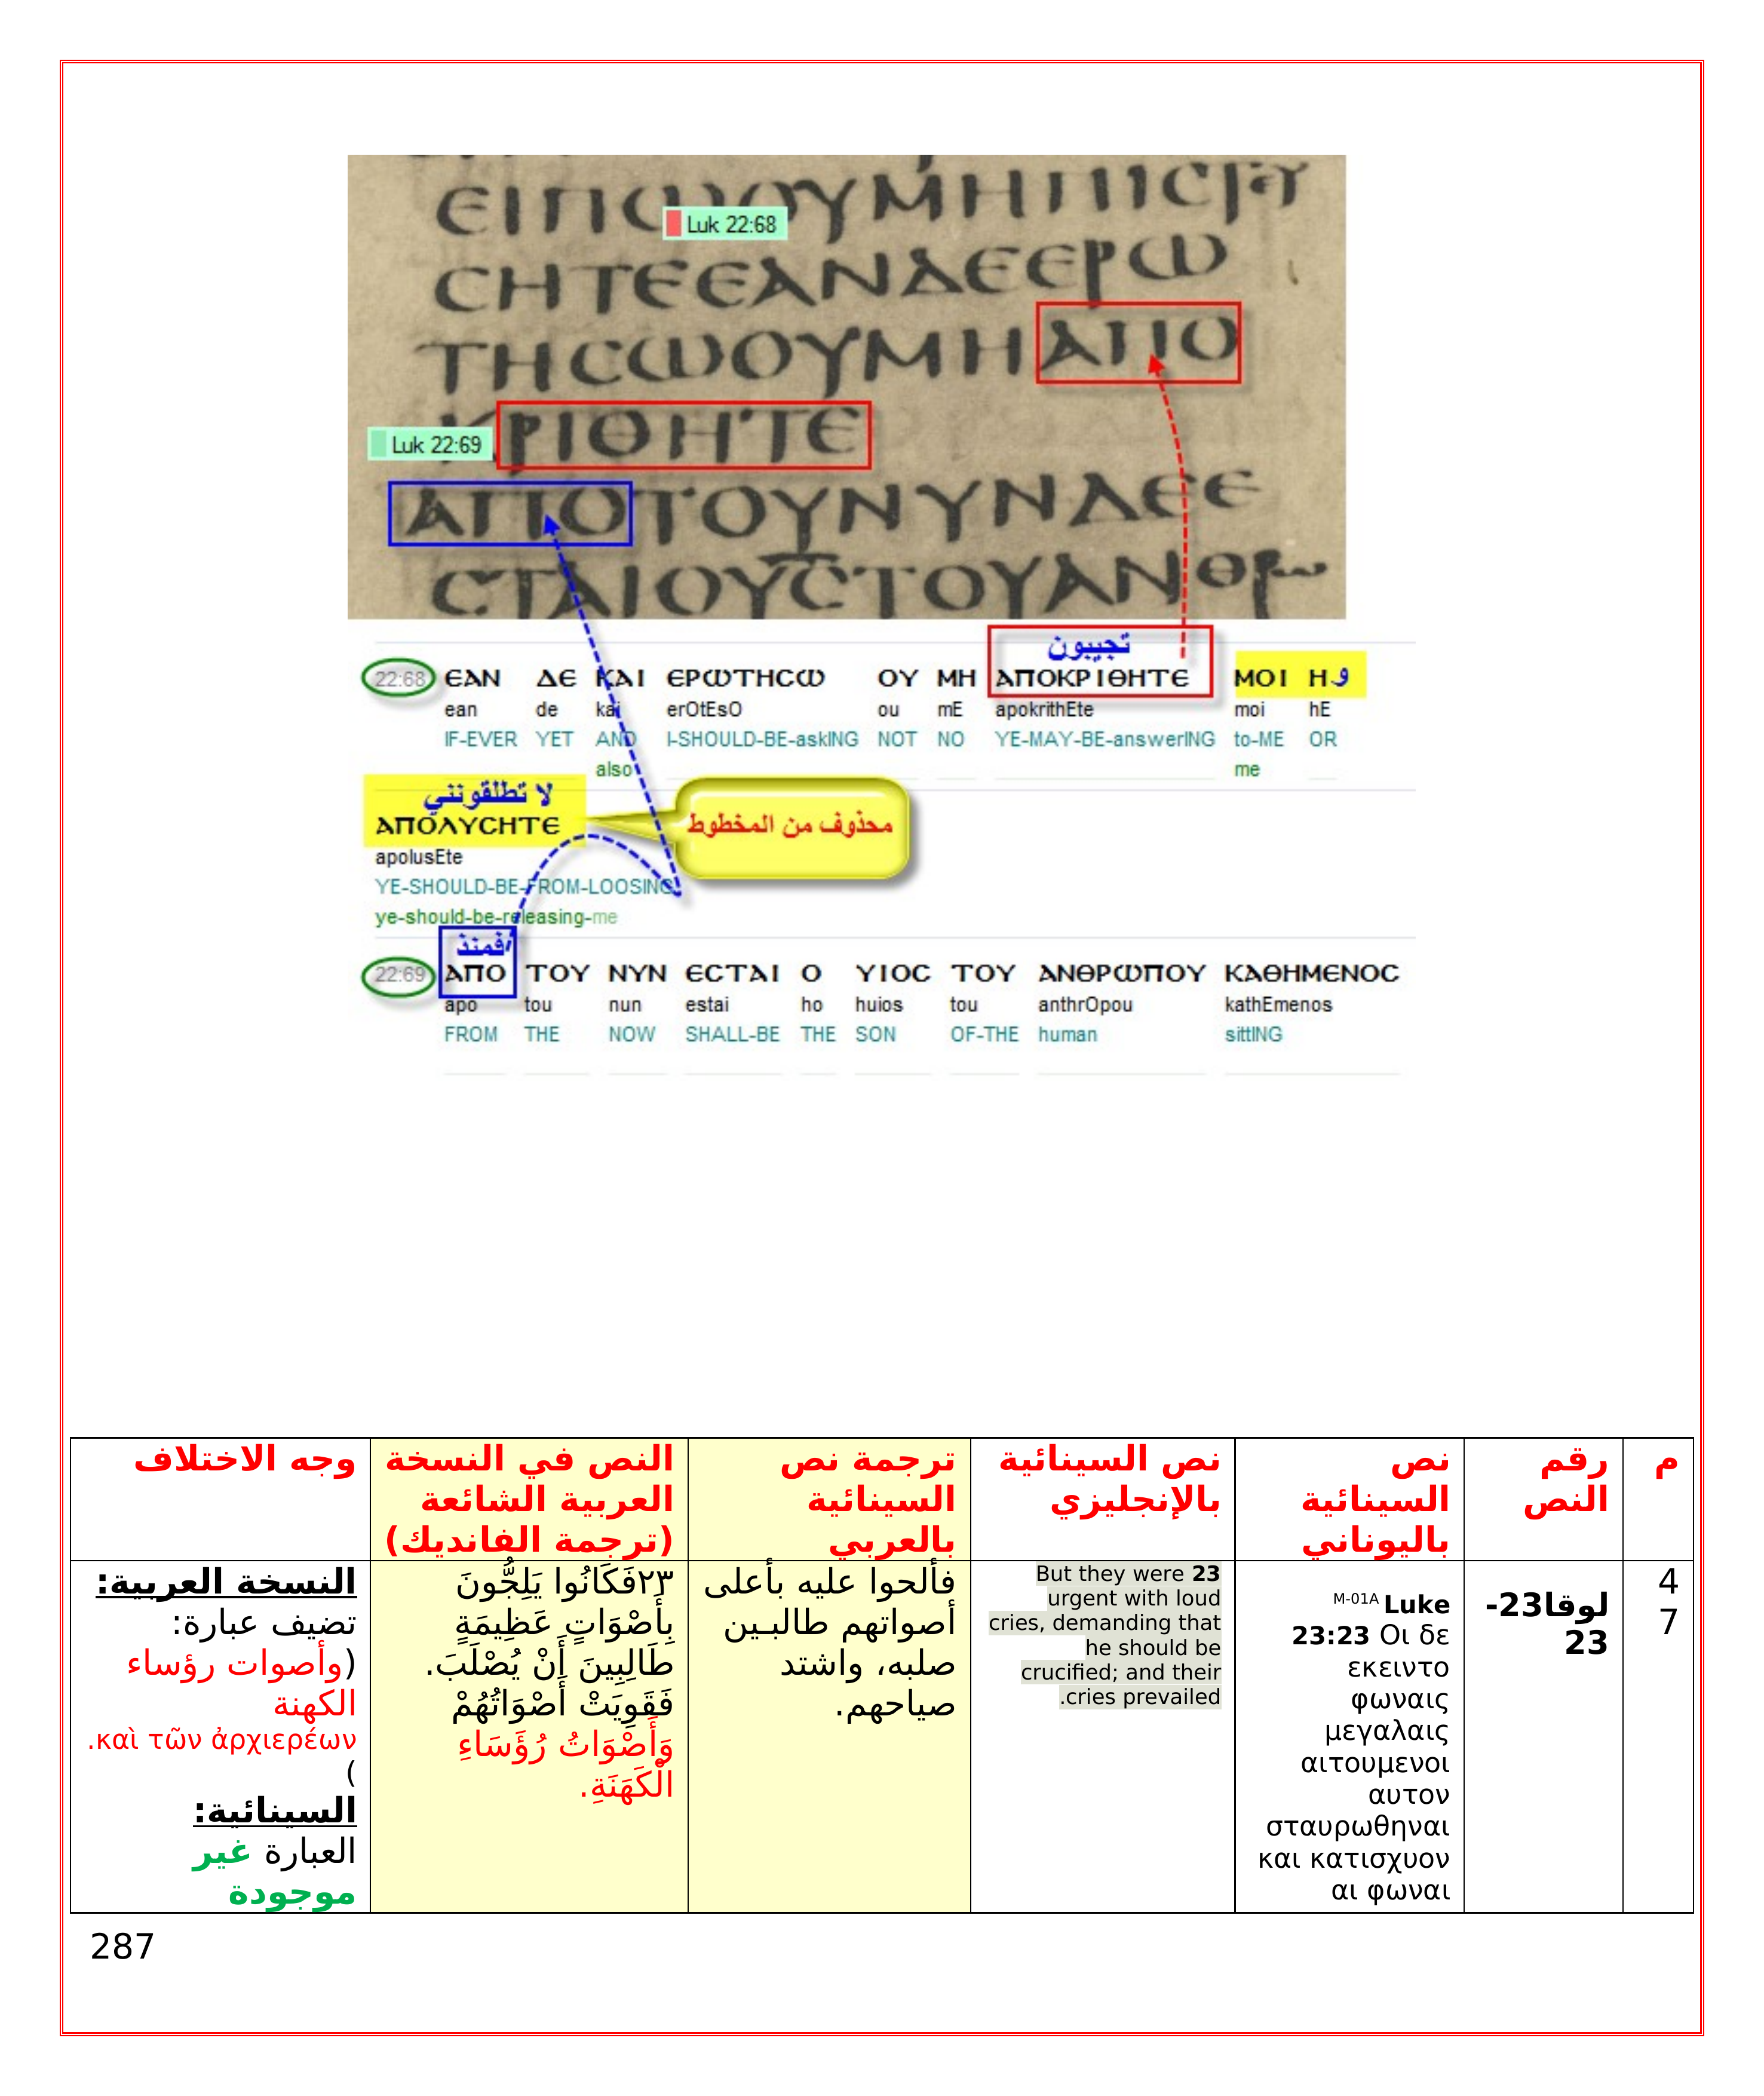 ΕΙΠΩΟΥΜΗΠΙϹ
Luk 22:68
ϹΗΤΕΕΑΝΔΕΕΡΩ
ΤΗϹΩΟΥΜΗΑΠΟ
ΚΡΙΘΗΤΕ
Luk 22:69
ΑΠΟΤΟΥΝΥΝΔΕΕ
ϹΤΑΙΟΥϹΤΟΥΑΝΘΡω
تجيبون
22:68 ЄΑΝ ΔЄ ΚΑΙ ЄΡΩΤΗϹΩ ΟΥ ΜΗ ΑΠΟΚΡΙΘΗΤЄ ΜΟΙ Η و
ean de kai erOtEsO ou mE apokrithEte moi hE
IF-EVER YET AND I-SHOULD-BE-askING NOT NO YE-MAY-BE-answerING to-ME OR
also me
لا تطلقونني
ΑΠΟΛΥϹΗΤЄ
محذوف من المخطوط
apolusEte
YE-SHOULD-BE-FROM-LOOSING
ye-should-be-releasing-me
فمنذ
22:69 ΑΠΟ ΤΟΥ ΝΥΝ ЄϹΤΑΙ Ο ΥΙΟϹ ΤΟΥ ΑΝΘΡΩΠΟΥ ΚΑΘΗΜЄΝΟϹ
apo tou nun estai ho huios tou anthrOpou kathEmenos
FROM THE NOW SHALL-BE THE SON OF-THE human sittING
م
رقم
النص
نص
السينائية
باليوناني
نص السينائية
بالإنجليزي
ترجمة نص
السينائية
بالعربي
النص في النسخة
العربية الشائعة
(ترجمة الفانديك)
وجه الاختلاف
4
7
لوقا23-
23
M-01A Luke
23:23 Οι δε
εκειντο
φωναις
μεγαλαις
αιτουμενοι
αυτον
σταυρωθηναι
και κατισχυον
αι φωναι
But they were 23
urgent with loud
cries, demanding that
he should be
crucified; and their
.cries prevailed
فألحوا عليه بأعلى
أصواتهم طالبـين
صلبه، واشتد
صياحهم.
٢٣فَكَانُوا يَلِجُّونَ
بِأَصْوَاتٍ عَظِيمَةٍ
طَالِبِينَ أَنْ يُصْلَبَ.
فَقَوِيَتْ أَصْوَاتُهُمْ
وَأَصْوَاتُ رُؤَسَاءِ
الْكَهَنَةِ.
النسخة العربية:
تضيف عبارة:
(وأصوات رؤساء
الكهنة
.καὶ τῶν ἀρχιερέων
)
السينائية:
العبارة غير
موجودة
287